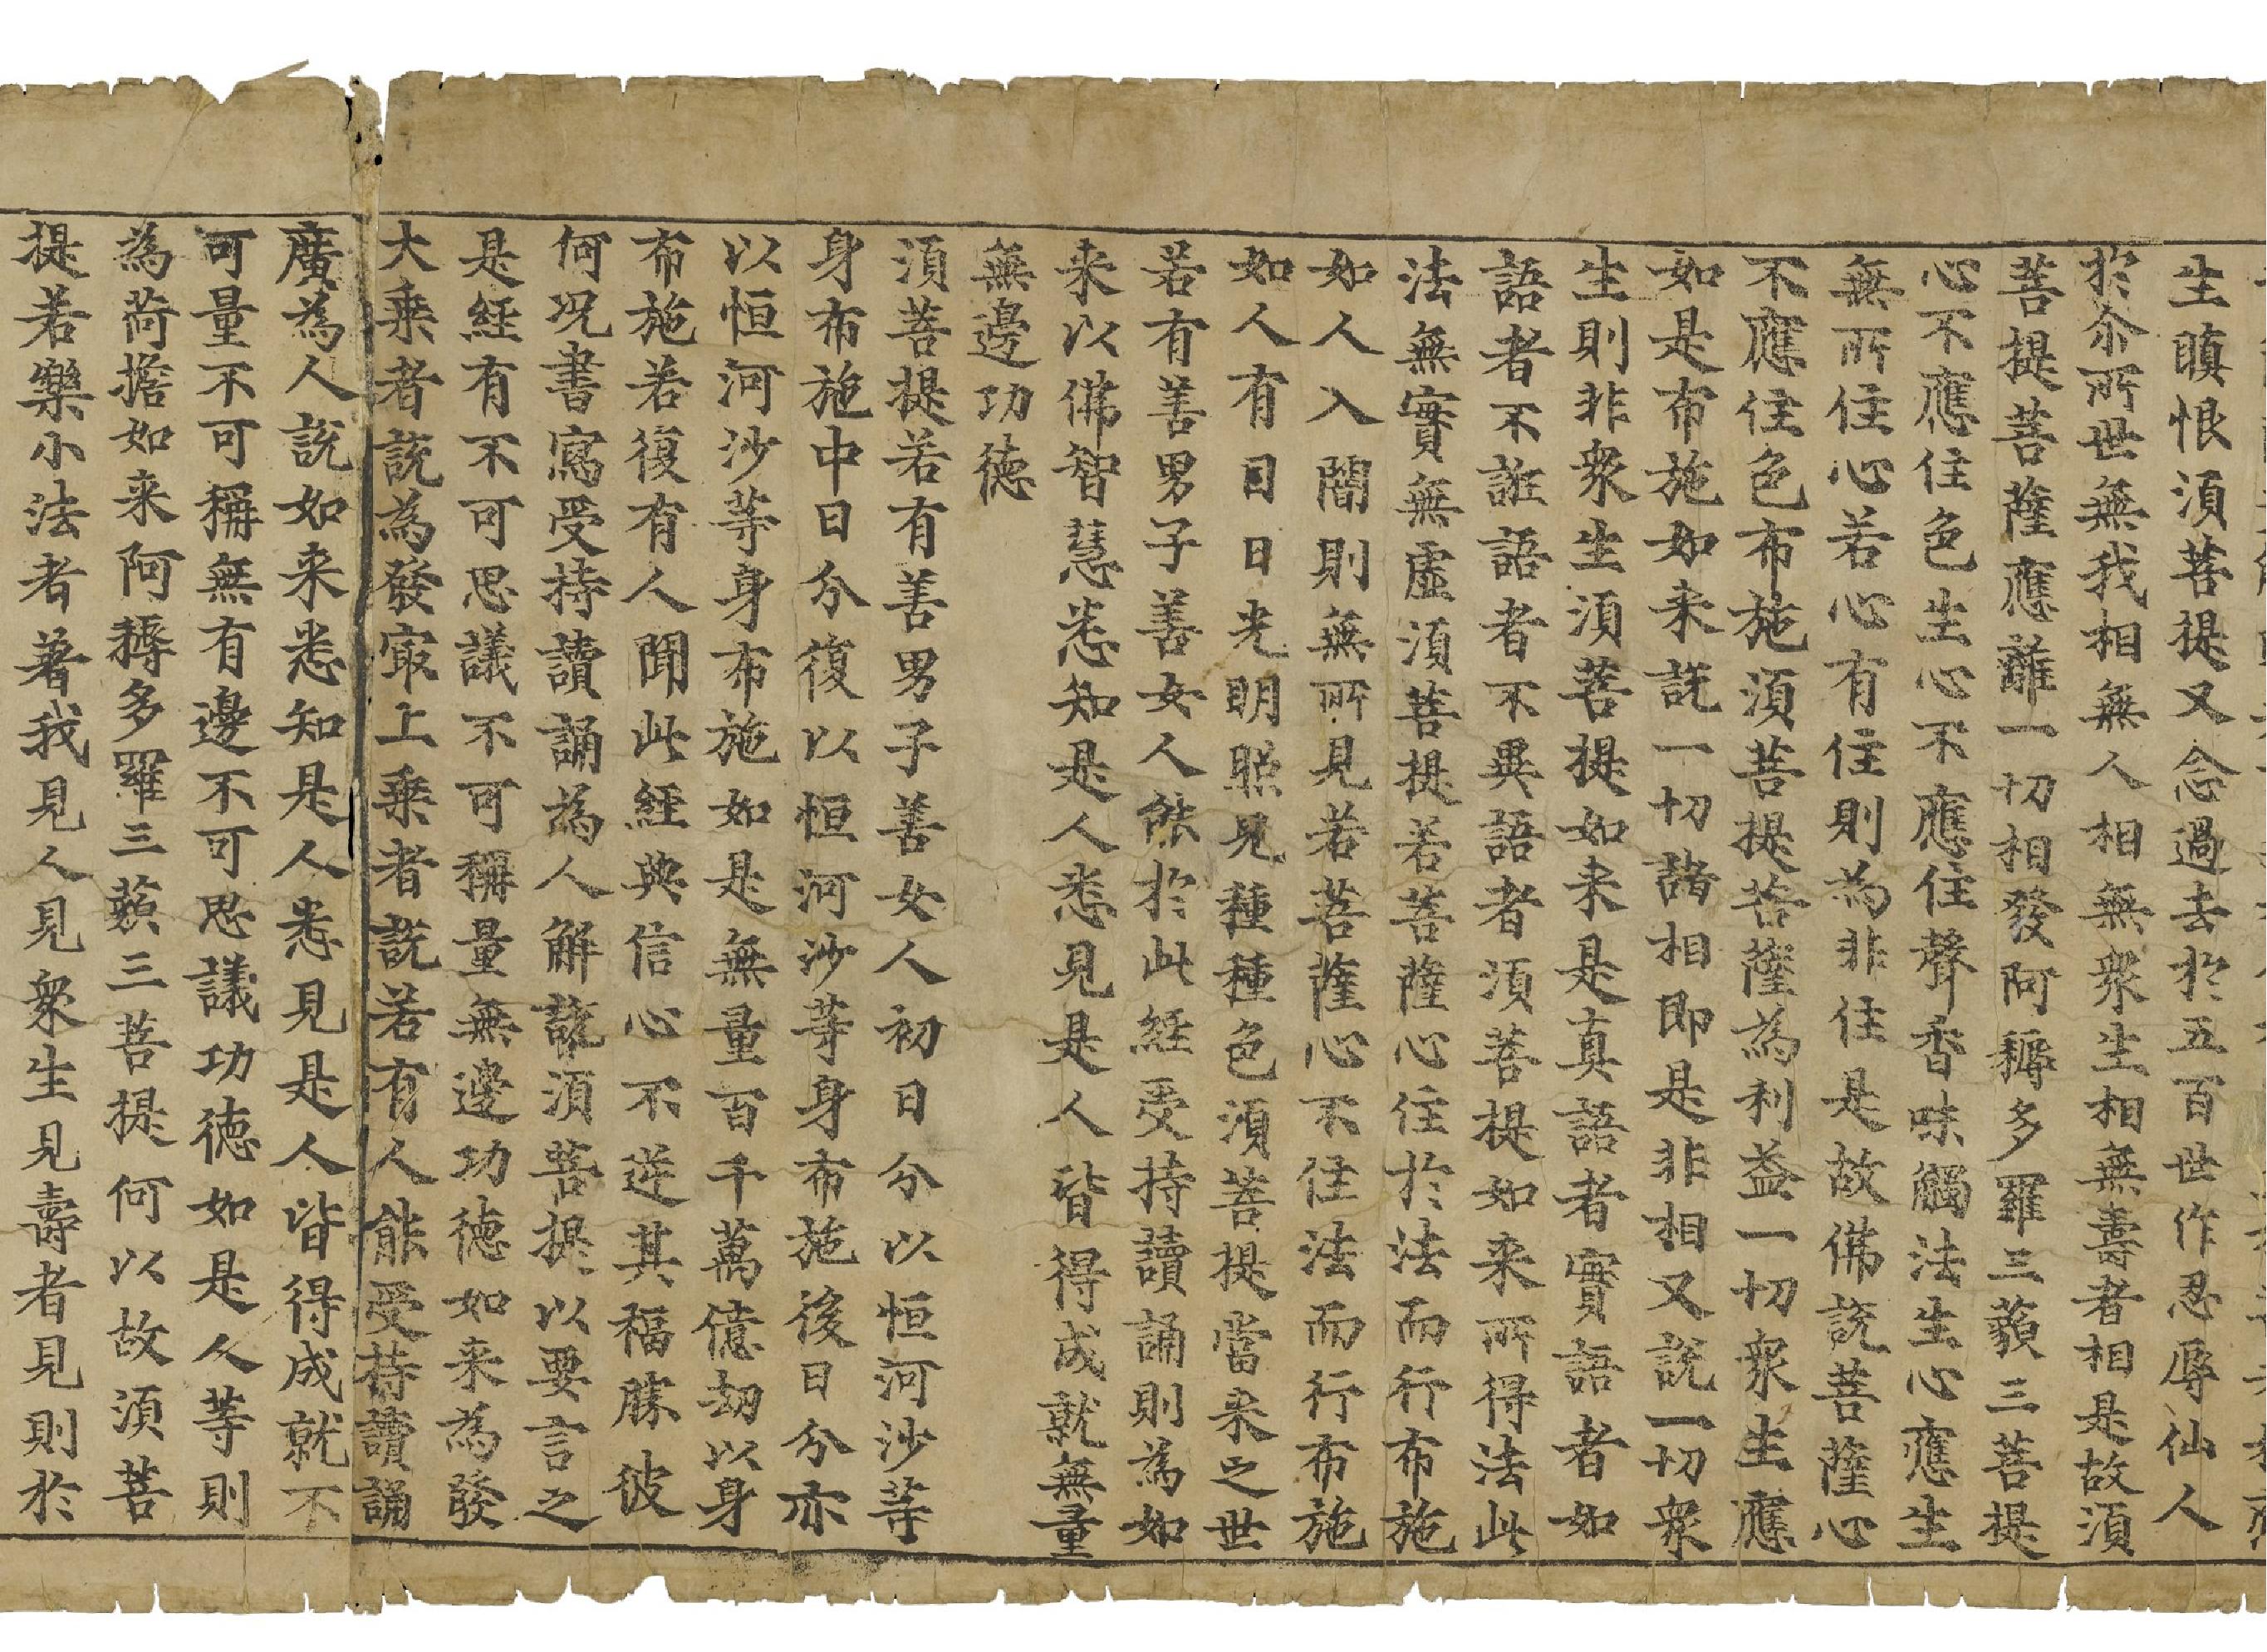 生瞋恨須菩提又念過去於五百世作忍辱仙人
於尒所世無我相無人相無衆生相無壽者相是故須
菩提菩薩應離一切相發阿耨多羅三藐三菩提
心不應住色生心不應住聲香味觸法生心應生
無所住心若心有住則為非住是故佛說菩薩心
不應住色布施須菩提菩薩為利益一切衆生應
如是布施如来說一切諸相即是非相又說一切衆
生則非衆生須菩提如来是真語者實語者如
語者不誑語者不異語者須菩提如来所得法此
法無實無虛須菩提若菩薩心住於法而行布施
如人入闇則無所見若菩薩心不住法而行布施
如人有目日光明照見種種色須菩提當来之世
若有善男子善女人能於此経受持讀誦則為如
来以佛智慧悉知是人悉見是人皆得成就無量
無邊功徳
須菩提若有善男子善女人初日分以恒河沙等
身布施中日分復以恒河沙等身布施後日分亦
以恒河沙等身布施如是無量百千萬億劫以身
布施若復有人聞此経典信心不逆其福勝彼
何況書寫受持讀誦為人解說須菩提以要言之
是経有不可思議不可稱量無邊功徳如来為發
大乗者說為發冣上乗者說若有人能受持讀誦
廣為人說如来悉知是人悉見是人皆得成就不
可量不可稱無有邊不可思議功徳如是人等則
為荷擔如来阿耨多羅三藐三菩提何以故須菩
提若樂小法者著我見人見衆生見壽者見則於